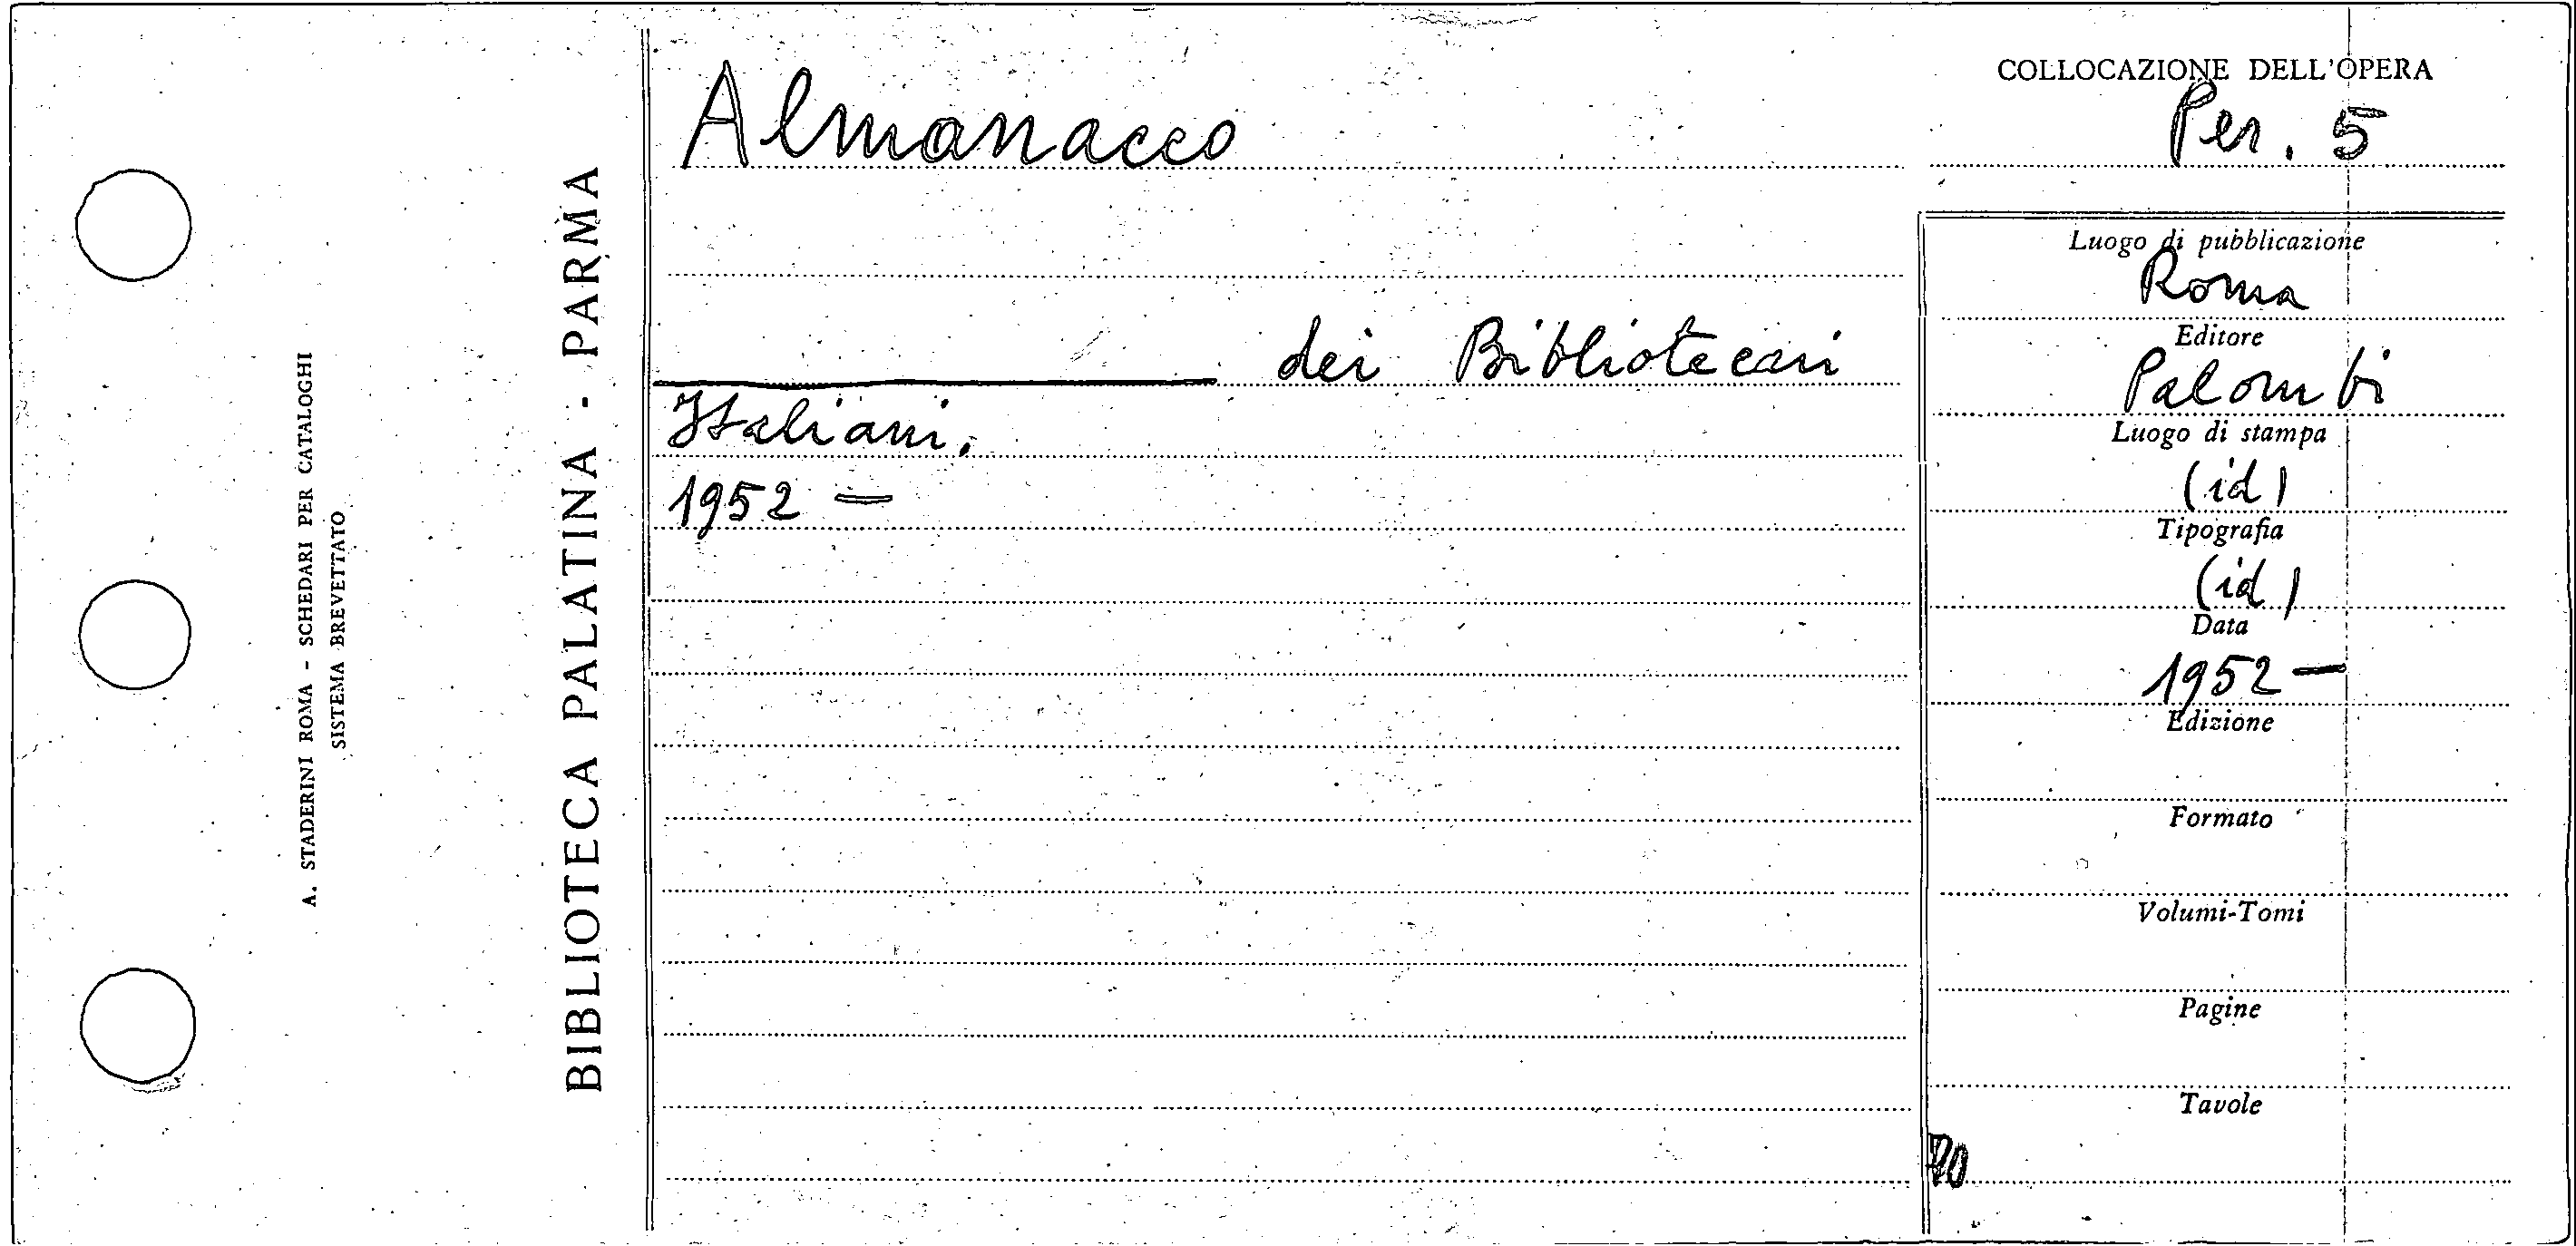 A. STADERINI ROMA - SCHEDARI PER CATALOGHI
SISTEMA BREVETTATO
BIBLIOTECA PALATINA - PARMA
Almanacco
dei Bibliotecari
Italiani.
1952 —
COLLOCAZIONE DELL'OPERA
Per. 5
Luogo di pubblicazione
Roma
Editore
Palombi
Luogo di stampa
(id)
Tipografia
(id)
Data
1952 —
Edizione
Formato
Volumi-Tomi
Pagine
Tavole